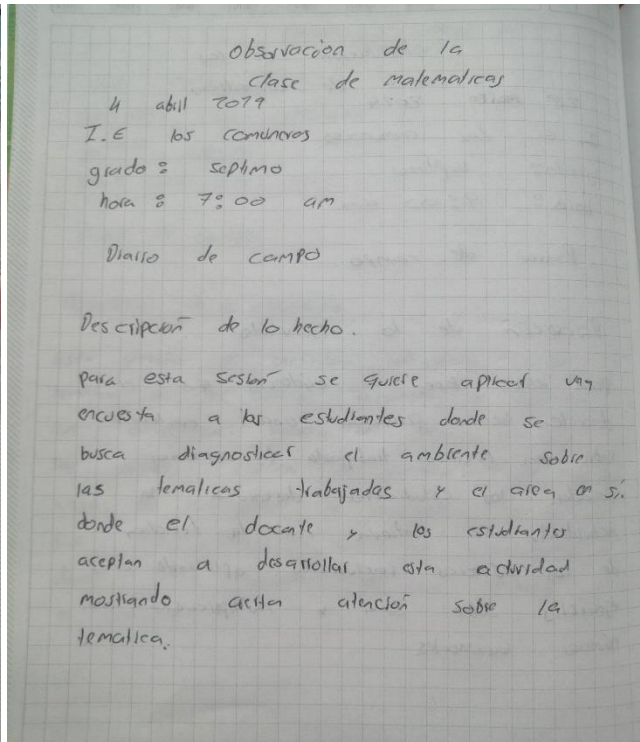 Observación de la
clase de matematicas
4 abril 2019
I.E los comuneros
grado: septimo
hora: 7:00 am
Diario de campo
Descripción de lo hecho.
para esta sesión se quiere aplicar una
encuesta a los estudiantes donde se
busca diagnosticar el ambiente sobre
las tematicas trabajadas y el area en sí.
donde el docente y los estudiantes
aceptan a desarrollar esta actividad
mostrando atención sobre la
tematica.